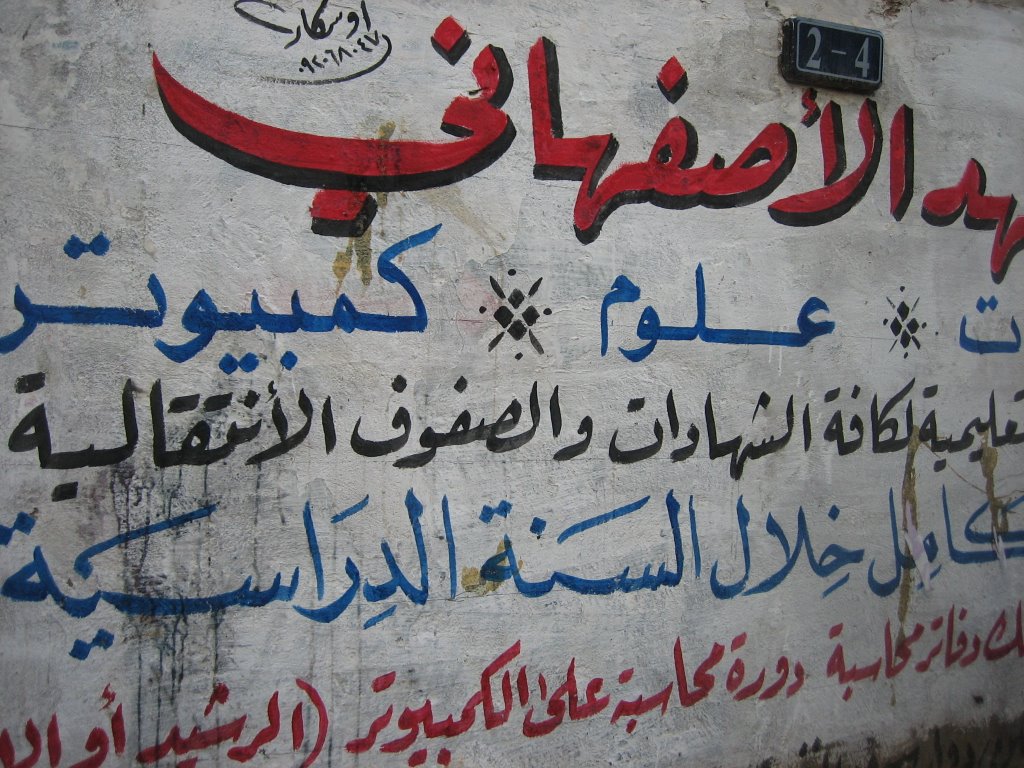 اوسكار
٠٩٢٠٦٨٠٤٧
2-4
هد الأصفهاني
ت علوم كمبيوتر
تعليمية لكافة الشهادات والصفوف الأنتقالية
كامل خِلال السنة الدِرَاسية
مسك دفاتر محاسبة دورة محاسبة على الكمبيوتر (الرشيد أو الا